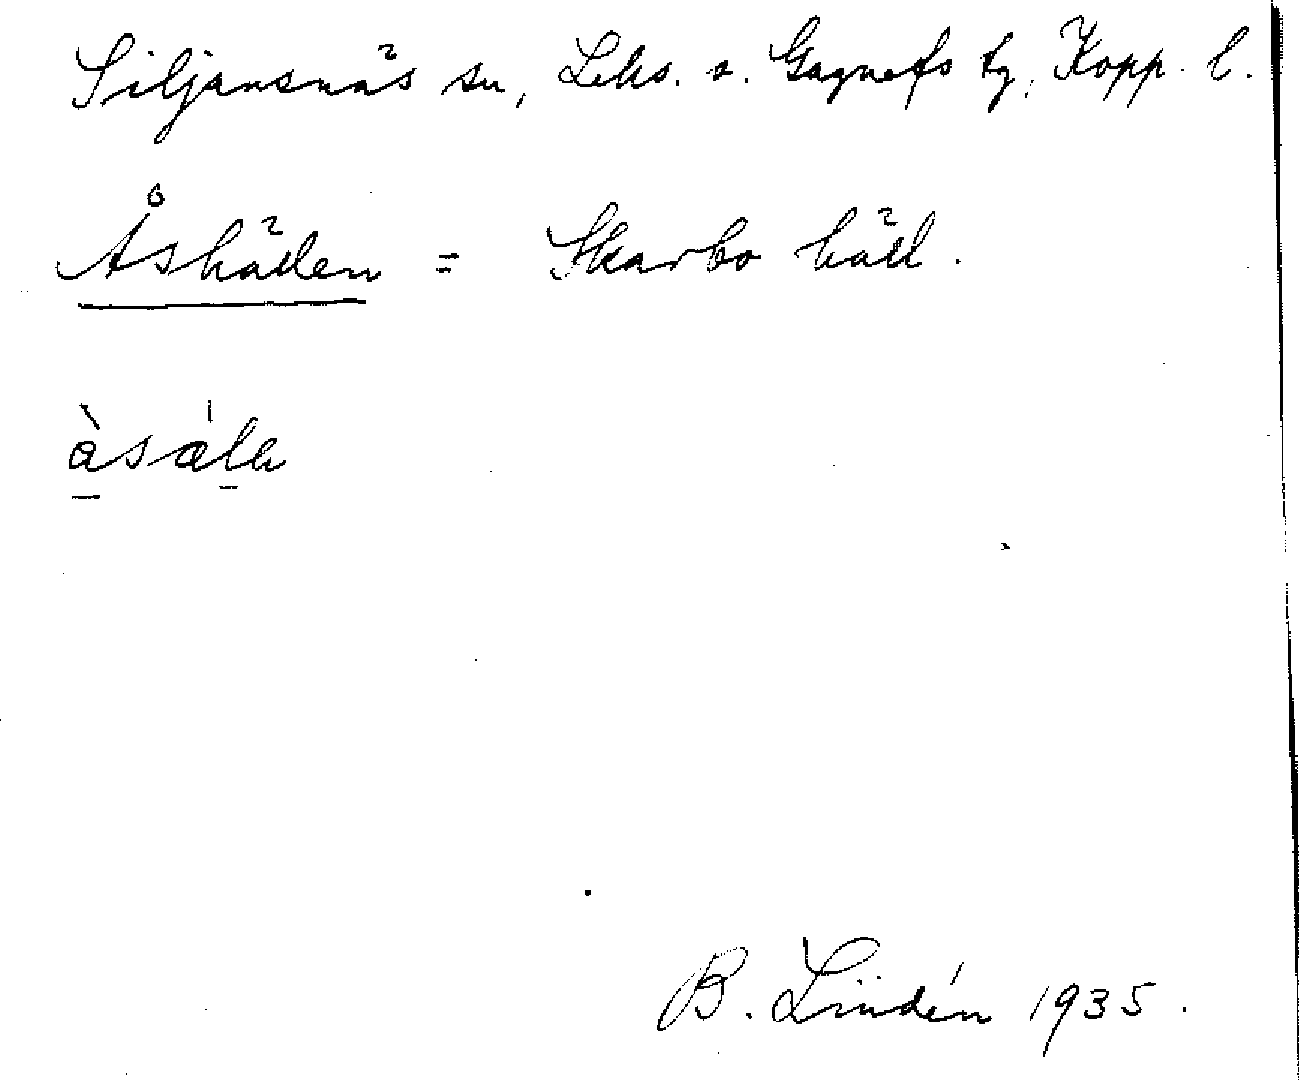 Siljansnäs sn, Leks. o. Gagnefs tg, Kopp. l.
Åshällen = Skarbo häll.
àsálẹn
B. Lindén 1935.